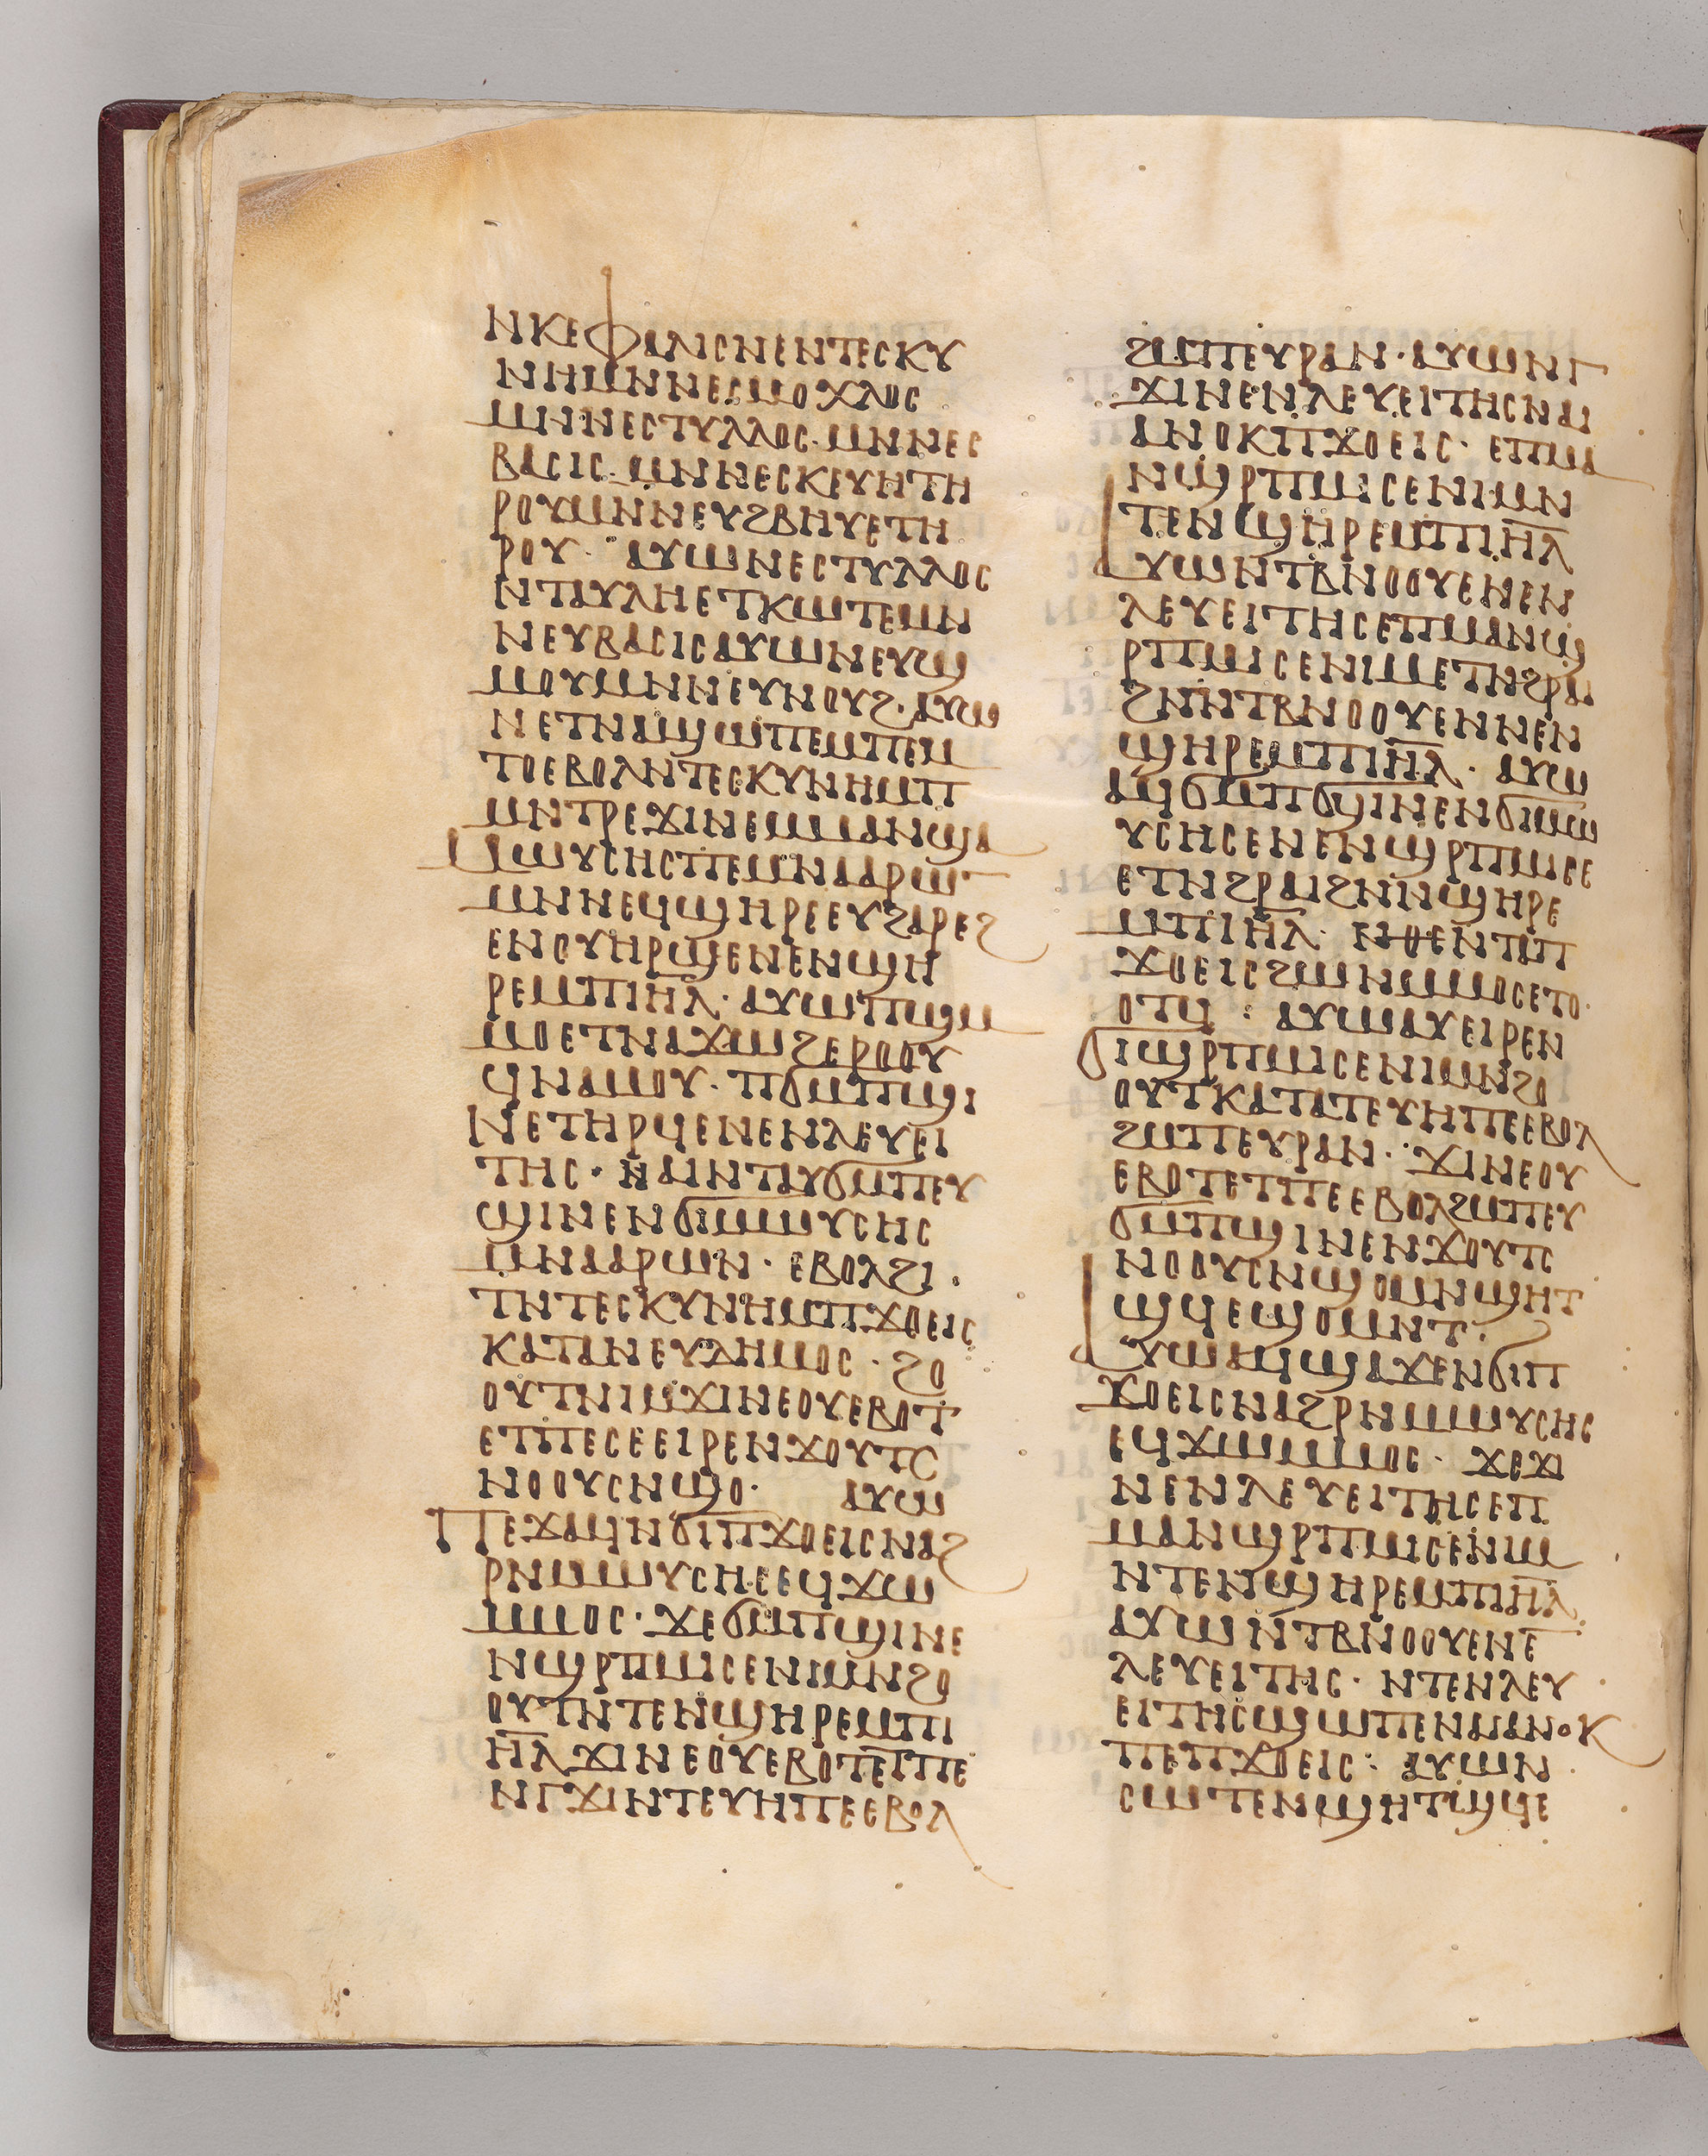 ⲛⲕⲉⲫⲁⲗⲓⲥⲛⲉⲛⲧⲉⲥⲕⲩ
ⲛⲏⲙⲛⲛⲉⲥⲙⲟⲭⲗⲟⲥ
ⲙⲛⲛⲉⲥⲧⲩⲗⲗⲟⲥ·ⲙⲛⲛⲉⲥ
ⲃⲁⲥⲓⲥ·ⲙⲛⲛⲉⲥⲕⲉⲩⲏⲧⲏ
ⲣⲟⲩⲙⲛⲛⲉⲩϩⲃⲏⲩⲉⲧⲏ
ⲣⲟⲩ· ⲁⲩⲱⲛⲉⲥⲧⲩⲗⲗⲟⲥ
ⲛⲧⲁⲩⲗⲏⲉⲧⲕⲱⲧⲉⲙⲛ
ⲛⲉⲩⲃⲁⲥⲓⲥⲁⲩⲱⲛⲉⲩϣ
ⲙⲟⲩⲙⲛⲛⲉⲩⲛⲟⲩϩ·ⲁⲩⲱ
ⲛⲉⲧⲛⲁϣⲱⲡⲉⲙⲡⲉⲙ
ⲧⲟⲉⲃⲟⲗⲛⲧⲉⲥⲕⲩⲛⲏⲙⲡ
ⲙⲛⲧⲣⲉϫⲓⲛⲉⲙⲙⲁⲛϣⲁ
ⲙⲱⲩⲥⲏⲥⲡⲉⲙⲛⲁⲁⲣⲱⲛ
ⲙⲛⲛⲉϥϣⲏⲣⲉⲉⲩϩⲁⲣⲉϩ
ⲉⲛⲟⲩⲏⲣϣⲉⲛⲉⲛϣⲏ
ⲣⲉⲙⲡⲓⲏ̅ⲗ̅·ⲁⲩⲱⲡϣⲙ
ⲙⲟⲉⲧⲛⲁϫⲱϩⲉⲣⲟⲟⲩ
ϥⲛⲁⲙⲟⲩ·ⲡϭⲙⲡϣⲓ
ⲛⲉⲧⲏⲣϥⲉⲛⲉⲛⲗⲉⲩⲉⲓ
ⲧⲏⲥ·ⲛⲁⲓⲛⲧⲁⲩϭⲙⲡⲉⲩ
ϣⲓⲛⲉⲛϭⲓⲙⲱⲩⲥⲏⲥ
ⲙⲛⲁⲁⲣⲱⲛ·ⲉⲃⲟⲗϩⲓ
ⲧⲛⲧⲉⲥⲕⲩⲛⲏⲙⲡϫⲟⲉⲓⲥ
ⲕⲁⲧⲁⲛⲉⲩⲇⲏⲙⲟⲥ·ϩⲟ
ⲟⲩⲧⲛⲓⲙϫⲓⲛⲉⲟⲩⲉⲃⲟⲧ
ⲉⲧⲡⲉⲥⲉⲉⲓⲣⲉⲛϫⲟⲩⲧⲥ
ⲛⲟⲟⲩⲥⲛϣⲟ· ⲁⲩⲱ
ⲡⲉϫⲁϥⲛϭⲓⲡϫⲟⲉⲓⲥⲛⲁϩ
ⲣⲛⲙⲱⲩⲥⲏⲥⲉϥϫⲱ
ⲙⲙⲟⲥ·ϫⲉϭⲙⲡϣⲓⲛⲉ
ⲛϣⲣⲡⲙⲓⲥⲉⲛⲓⲙⲛϩⲟ
ⲟⲩⲧⲛⲧⲉⲛϣⲏⲣⲉⲙⲡⲓ
ⲏ̅ⲗ̅ϫⲓⲛⲉⲟⲩⲉⲃⲟⲧⲉⲧⲡⲉ
ⲛⲅϫⲓⲛⲧⲉⲩⲏⲡⲉⲉⲃⲟⲗ
ϩⲙⲡⲉⲩⲣⲁⲛ·ⲁⲩⲱⲛⲅ
ϫⲓⲛⲉⲛⲗⲉⲩⲉⲓⲧⲏⲥⲛⲁⲓ
ⲁⲛⲟⲕⲡϫⲟⲉⲓⲥ·ⲉⲡⲙⲁ
ⲛϣⲣⲡⲙⲓⲥⲉⲛⲓⲙⲛ
ⲧⲉⲛϣⲏⲣⲉⲙⲡⲓⲏ̅ⲗ̅
ⲁⲩⲱⲛⲧⲃⲛⲟⲟⲩⲉⲛⲉⲛ
ⲗⲉⲩⲉⲓⲧⲏⲥⲉⲡⲙⲁⲛϣ
ⲣⲡⲙⲓⲥⲉⲛⲓⲙⲉⲧⲛϩⲣⲁⲓ
ϩⲛⲛⲧⲃⲛⲟⲟⲩⲉⲛⲛⲉⲛ
ϣⲏⲣⲉⲙⲡⲓⲏ̅ⲗ̅·ⲁⲩⲱ
ⲁϥϭⲙⲡϭϣⲓⲛⲉⲛϭⲓⲙⲱ
ⲩⲥⲏⲥⲉⲛⲉⲛϣⲣⲡⲙⲓⲥⲉ
ⲉⲧⲛϩⲣⲁⲓϩⲛⲛϣⲏⲣⲉ
ⲙⲡⲓⲏ̅ⲗ̅·ⲛⲑⲉⲛⲧⲁⲡ
ϫⲟⲉⲓⲥϩⲱⲛⲙⲙⲟⲥⲉⲧⲟ
ⲟⲧϥ: ⲁⲩⲱⲁⲩⲉⲓⲣⲉⲛ
ϭⲓϣⲣⲡⲙⲓⲥⲉⲛⲓⲙⲛϩⲟ
ⲟⲩⲧⲕⲁⲧⲁⲧⲉⲩⲏⲡⲉⲉⲃⲟⲗ
ϩⲙⲡⲉⲩⲣⲁⲛ·ϫⲓⲛⲉⲟⲩ
ⲉⲃⲟⲧⲉⲧⲡⲉⲉⲃⲟⲗϩⲙⲡⲉⲩ
ϭⲙⲡϣⲓⲛⲉⲛϫⲟⲩⲧⲥ
ⲛⲟⲟⲩⲥⲛϣⲟⲙⲛϣⲏⲧ
ϣϥⲉϣⲟⲙⲛⲧ·
ⲁⲩⲱⲁϥϣⲁϫⲉⲛϭⲓⲡ
ϫⲟⲉⲓⲥⲛⲁϩⲣⲛⲙⲙⲱⲩⲥⲏⲥ
ⲉϥϫⲱⲙⲙⲟⲥ·ϫⲉϫⲓ
ⲛⲉⲛⲗⲉⲩⲉⲓⲧⲏⲥⲉⲡ
ⲙⲁⲛϣⲣⲡⲙⲓⲥⲉⲛⲓⲙ
ⲛⲧⲉⲛϣⲏⲣⲉⲙⲡⲓⲏ̅ⲗ̅
ⲁⲩⲱⲛⲧⲃⲛⲟⲟⲩⲉⲛⲉ̅
ⲗⲉⲩⲉⲓⲧⲏⲥ·ⲛⲧⲉⲛⲗⲉⲩ
ⲉⲓⲧⲏⲥϣⲱⲡⲉⲛⲁⲓⲁⲛⲟⲕ
ⲡⲉⲡϫⲟⲉⲓⲥ: ⲁⲩⲱⲛ
ⲥⲱⲧⲉⲛϣⲏⲧϣϥⲉ